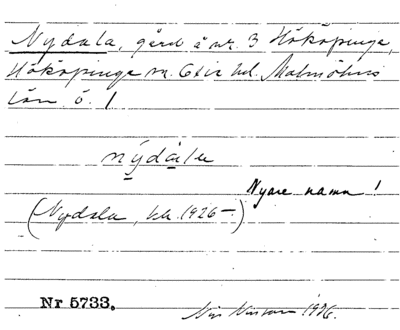 Nydala, gård å nr. 3 Hököpinge,
Hököpinge sn. Oxie hd. Malmöhus
län ö. 1
nýdàla
Nyare namn!
(Nydala, kh. 1926—)
Nr 5733.
1936.